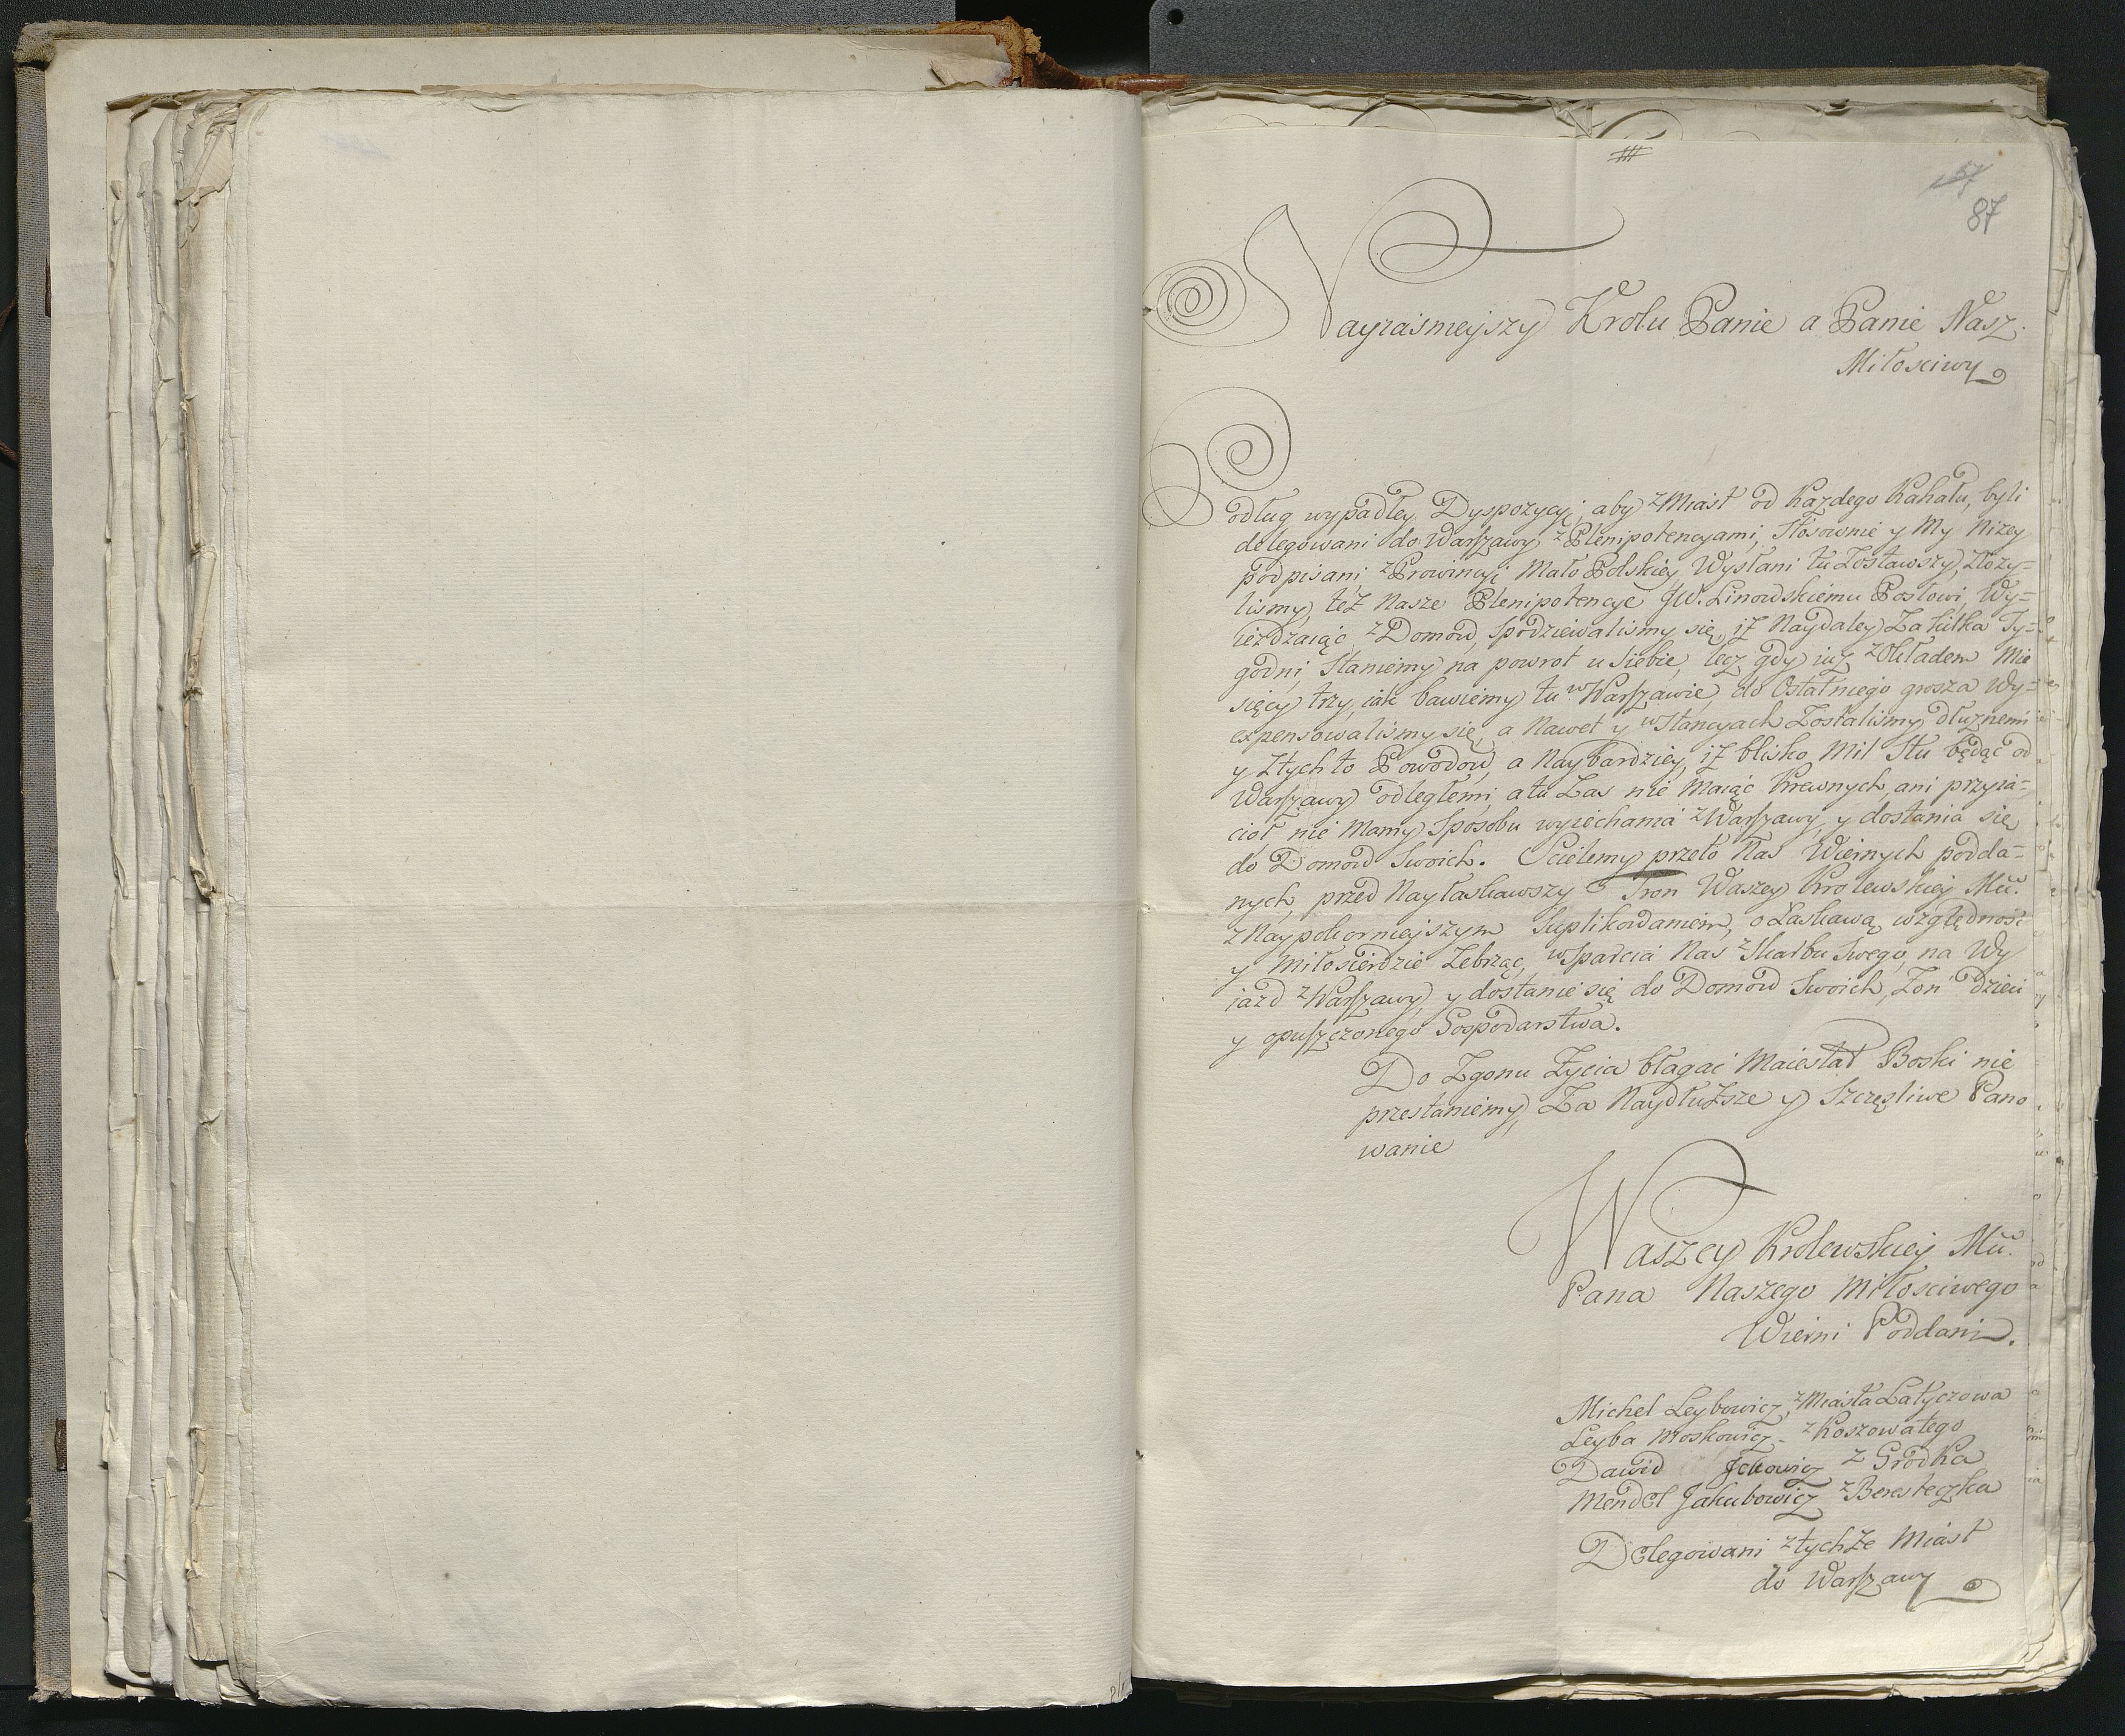 87
Nayiasnieyszy Krolu Panie a Panie Nasz
Miłosciwy
Podług wypadłey Dyspozycyi, aby z Miast od Każdego Kahału, byli
delegowani do Warszawy z Plenipotencyami, Stosownie y My Niżey
podpisani z Prowincyi Mało Polskiey Wysłani tu Zostawszy, Złozy=
lismy też Nasze Plenipotencye JW. Linowskiemu Posłowi, Wy=
ieżdzaiąc z Domow, Spodziewalismy się, iż Naydaley Za kilka Ty=
godni, Staniemy na powrot u Siebie, lecz gdy iuż z Okładem Mie
sięcy trzy, iak bawiemy tu w Warszawie, do Ostatniego grosza Wy=
expensowalismy się, a Nawet y w Stancyach Zostalismy dłużnemi
y Ztych to Powodow, a Naybardziey, iż blisko Mil Stu będąc od
Warszawy odległemi, a tu Zas nie Maiąc Krewnych, ani przyia=
cioł, nie Mamy Sposobu wyiechania z Warszawy, y dostania się
do Domow Swoich. Scielemy przeto Nas Wiernych podda=
nych, przed Nayłaskawszy Tron Waszey Krolewskiey Mci.
z Naypokornieyszym Suplikowaniem, o Łaskawą względność
y Miłosierdzie Zebrząc, wsparcia Nas z Skarbu Swego, na Wy
jazd z Warszawy, y dostanie się do Domow Swoich, Zon Dzieci
y opuszczonego Gospodarstwa.
Do Zgonu Zycia błagać Maiestat Boski nie
przestaniemy, Za Naydłuższe y Szczęsliwe Pano
wanie
Waszey Krolewskiey Mci.
Pana Naszego Miłosciwego
Wierni Poddani.
Michel Leybowicz z Miasta Latyczowa
Leyba Moskowicz z Koszowatego
Dawid Ickowicz z Grodka
Mendel Jakubowicz z Beresteczka
Delegowani z tychże Miast
do Warszawy